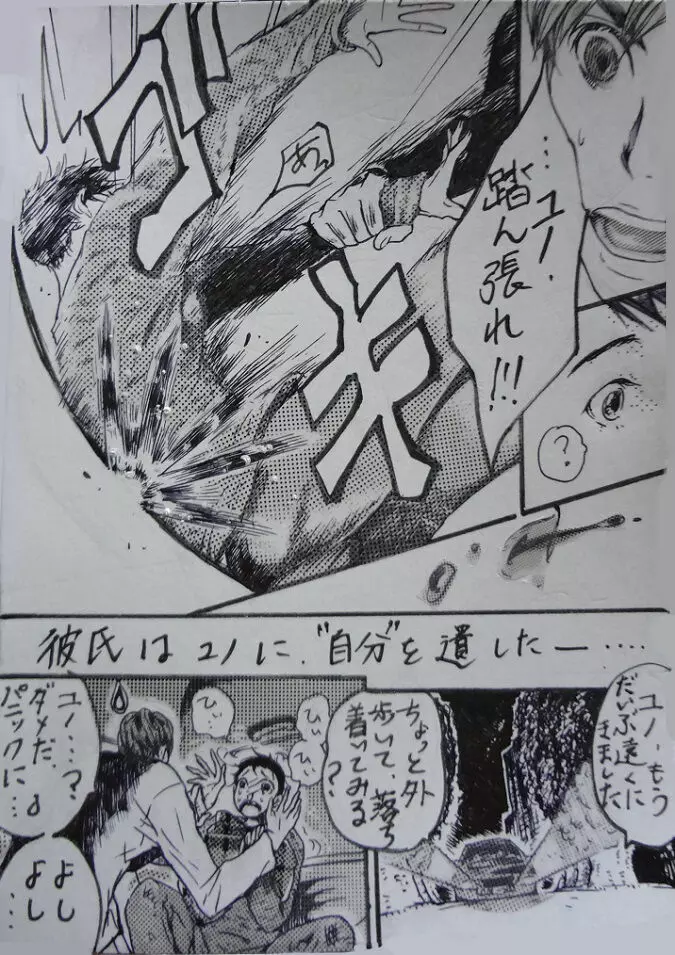 …ユノ、
踏ん張れ!!!
あっ
ズキ
?
彼氏はユノに、"自分"を遺したー‥‥
ユノ、もう
だいぶ遠くに
きました
ちょっと外
歩いて、落ち
着いてみる
?
ひぃ
ひぃ
ひぃ
ユノ…?
ダメだ、
パニックに…
よし
よし
…